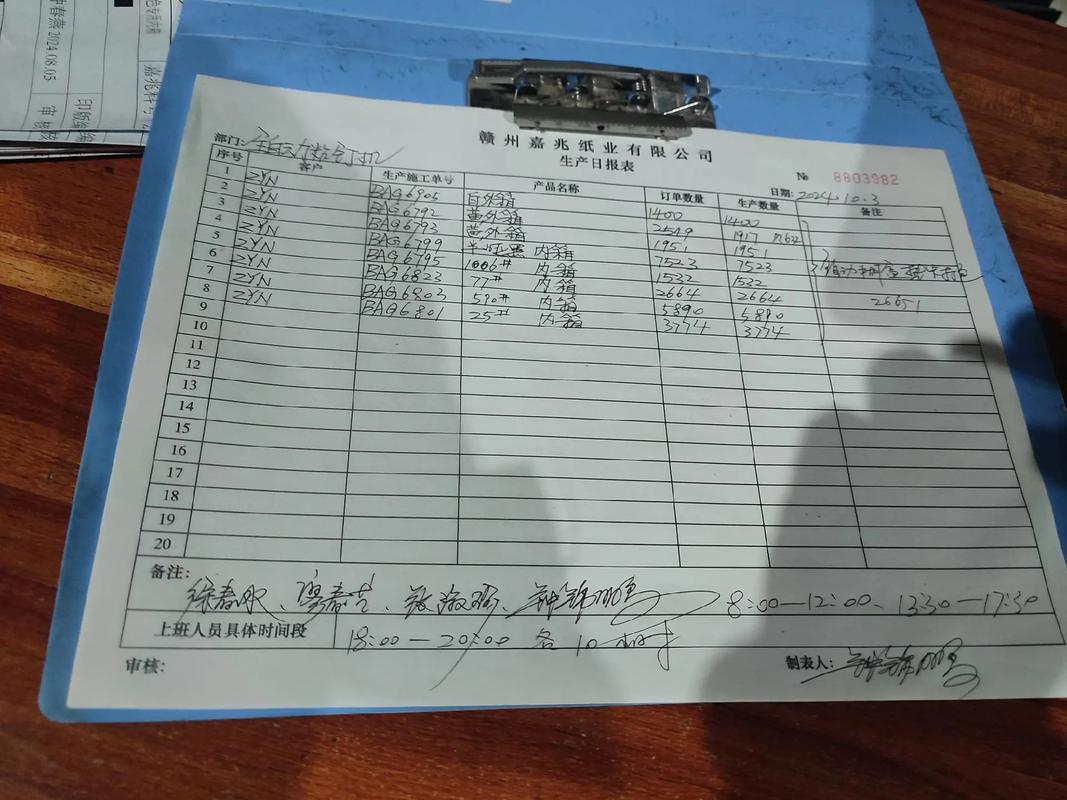 2024.08.05
审核
印版编
嘉兆料号
赣州嘉兆纸业有限公司
生产日报表
部门:
№ 8803982
日期: 2024.10.3
序号 客户 生产施工单号 产品名称 订单数量 生产数量 备注
1 ZYN BAG6905 白外箱 1400 1400
2 ZYN BAG6792 黄外箱 2549 1917 欠632
3 ZYN BAG6793 黄外箱 1951 1951
4 ZYN BAG6799 内箱 7523 7523
5 ZYN BAG6795 1006# 内箱 1532 1532
6 ZYN BAG6823 77# 内箱 2664 2664 26651
7 ZYN BAG6803 590# 内箱 5890 5890
8 ZYN BAG6801 25# 内箱 3774 3774
9
10
11
12
13
14
15
16
17
18
19
20
备注:
8:00—12:00、13:30—17:30
上班人员具体时间段 18:00—20:00 各10小时
审核:
制表人: